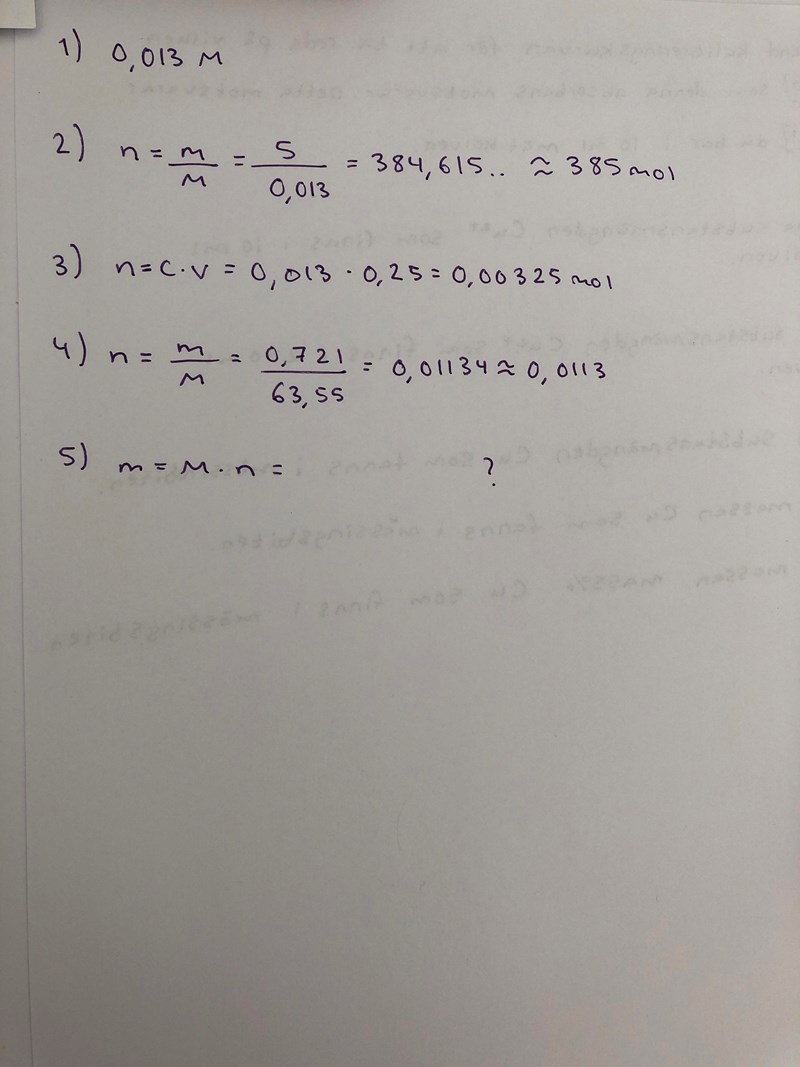 1) 0,013 M
2) n = m/M = 5/0,013 = 384,615.. ≈ 385 mol
3) n = c · v = 0,013 · 0,25 = 0,00325 mol
4) n = m/M = 0,721/63,55 = 0,01134 ≈ 0,0113
5) m = M · n = ?